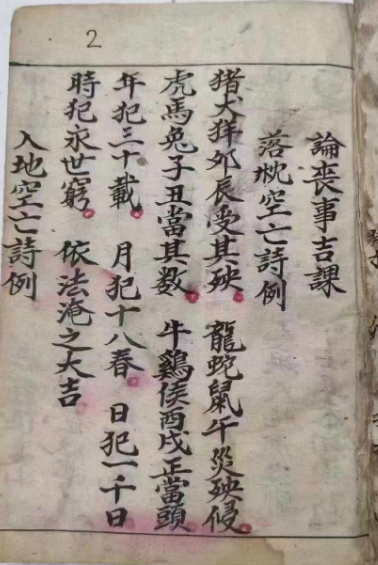 2
論喪事吉課
落枕空亡詩例
猪犬羊卯辰受其殃 龍蛇鼠午災殃侵
虎馬兔子丑當其数 牛鷄侯酉戌正當頭
年犯三十載 月犯十八春 日犯一千日
時犯永世窮 依法淹之大吉
入地空亡詩例